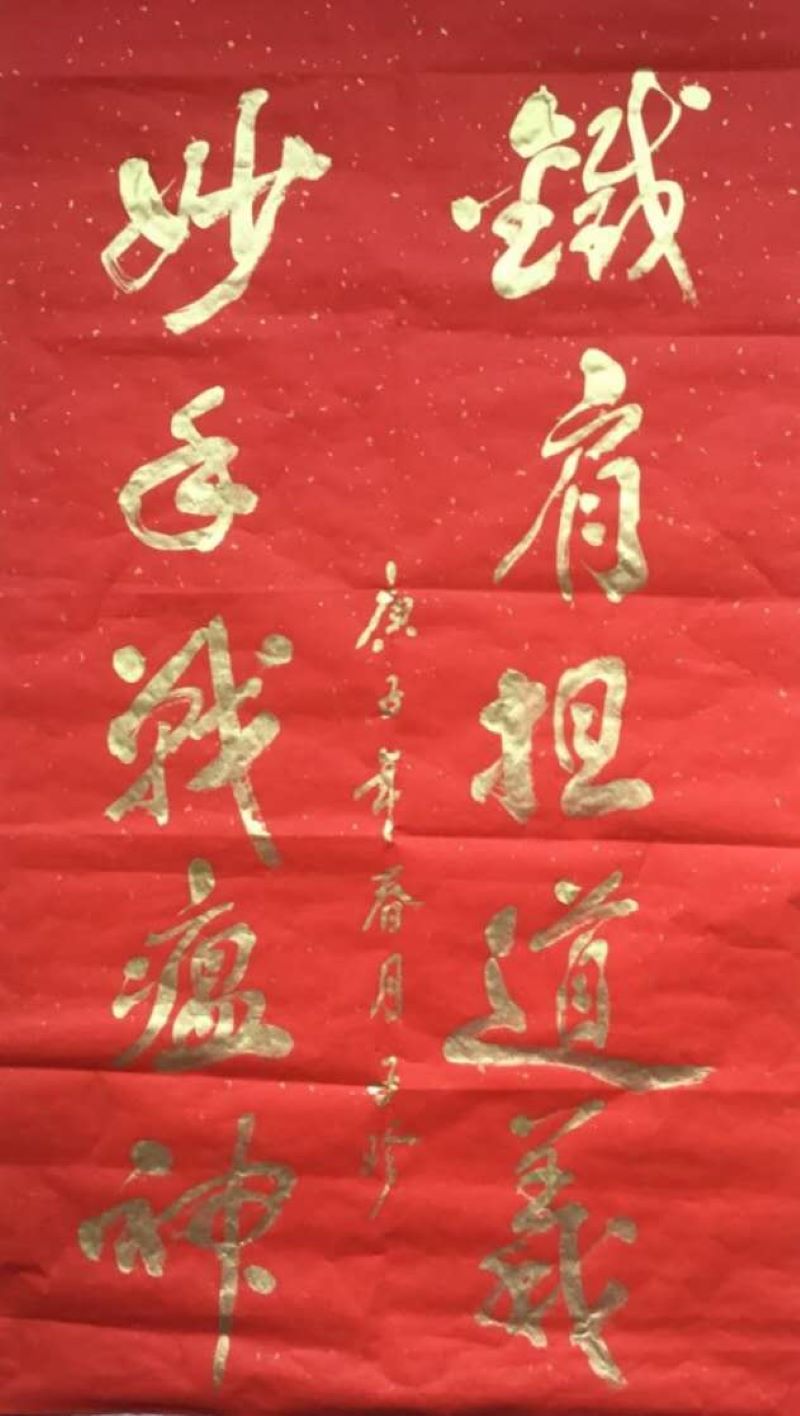 鐵肩担道義
妙手戰瘟神
庚子年春月子珍